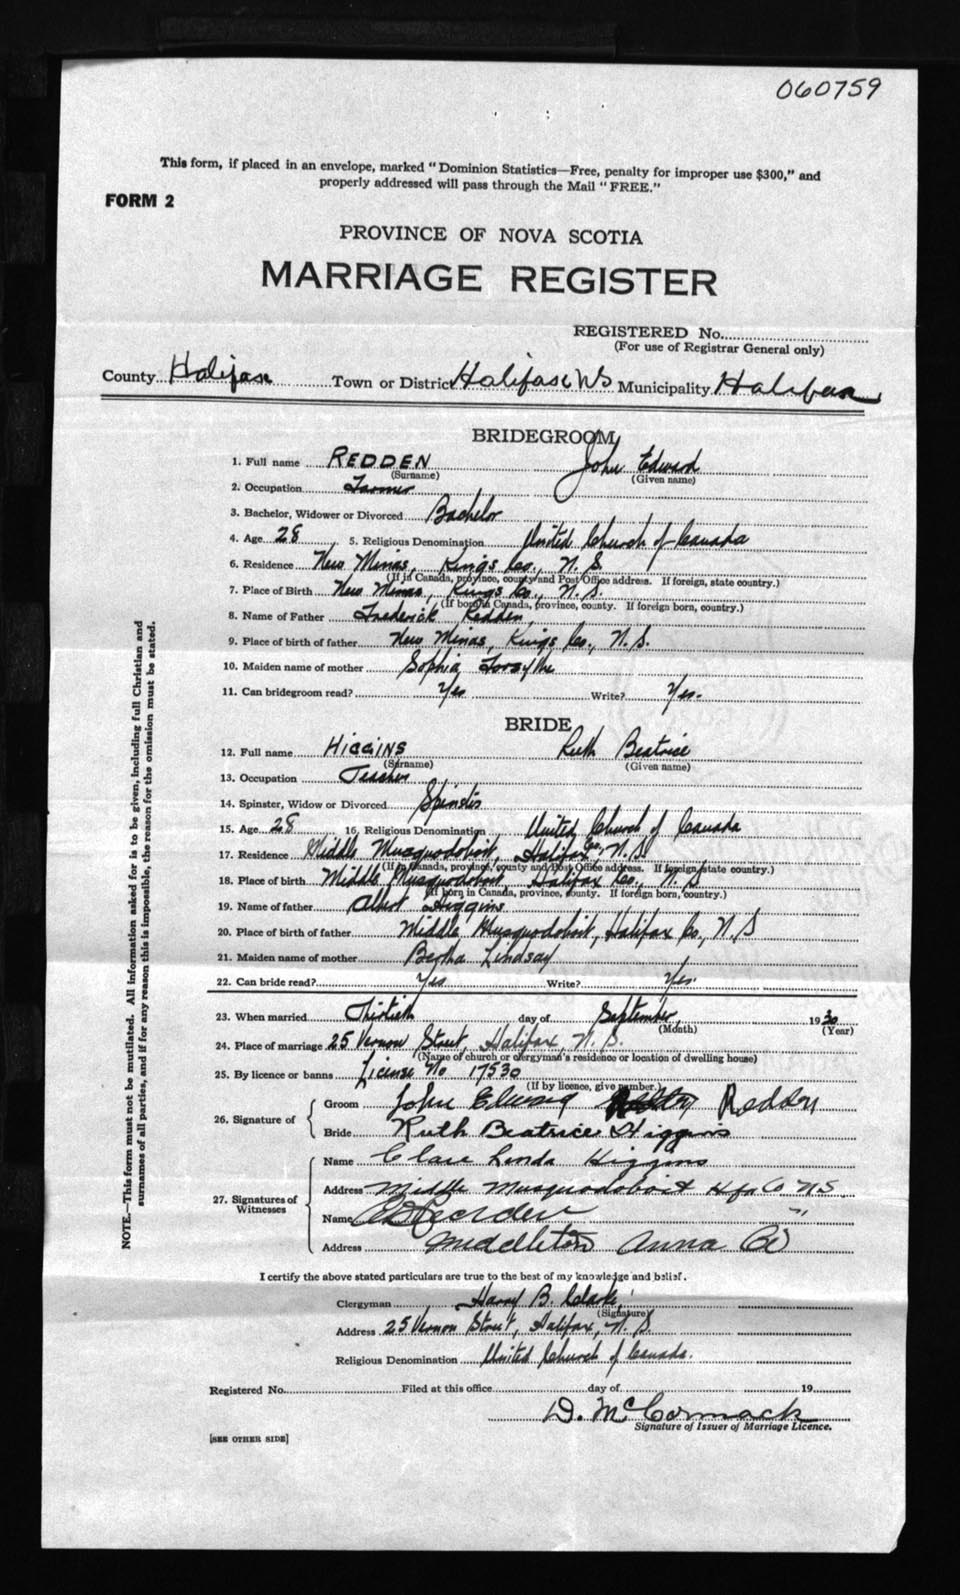 060759
This form, if placed in an envelope, marked "Dominion Statistics—Free, penalty for improper use $300," and
properly addressed will pass through the Mail "FREE."
FORM 2
PROVINCE OF NOVA SCOTIA
MARRIAGE REGISTER
REGISTERED No.
(For use of Registrar General only)
County Halifax Town or District Halifax NS Municipality Halifax
BRIDEGROOM
1. Full name REDDEN John Edward
(Surname) (Given name)
2. Occupation Farmer
3. Bachelor, Widower or Divorced Bachelor
4. Age 28 5. Religious Denomination United Church of Canada
6. Residence New Minas, Kings Co., N. S.
(If in Canada, province, county and Post Office address. If foreign, state country.)
7. Place of Birth New Minas, Kings Co., N. S.
(If born in Canada, province, county. If foreign born, country.)
8. Name of Father Frederick Redden,
9. Place of birth of father New Minas, Kings Co., N. S.
10. Maiden name of mother Sophia Forsythe
11. Can bridegroom read? Yes Write? Yes.
BRIDE
12. Full name HIGGINS Ruth Beatrice
(Surname) (Given name)
13. Occupation Teacher
14. Spinster, Widow or Divorced Spinster
15. Age 28 16. Religious Denomination United Church of Canada
17. Residence Middle Musquodoboit, Halifax Co., N. S.
(If in Canada, province, county and Post Office address. If foreign, state country.)
18. Place of birth Middle Musquodoboit, Halifax Co., N. S
(If born in Canada, province, county. If foreign born, country.)
19. Name of father Albert Higgins
20. Place of birth of father Middle Musquodoboit, Halifax Co., N. S
21. Maiden name of mother Bertha Lindsay
22. Can bride read? Yes Write? Yes.
23. When married Thirtieth day of September, 1930
(Month) (Year)
24. Place of marriage 25 Vernon Street, Halifax, N. S.
(Name of church or clergyman's residence or location of dwelling house)
25. By licence or banns License No 17530
(If by licence, give number.)
26. Signature of Groom John Edward Redden
Bride Ruth Beatrice Higgins
27. Signatures of Witnesses
Name Higgins
Address Middle Musquodoboit Hfx Co NS.
Name
Address Middleton Anna Co
I certify the above stated particulars are true to the best of my knowledge and belief.
Clergyman Harry B. Clarke,
(Signature)
Address 25 Vernon Street, Halifax, N. S.
Religious Denomination United Church of Canada.
Registered No. Filed at this office day of 19
D. McCormack
Signature of Issuer of Marriage Licence.
[SEE OTHER SIDE]
NOTE.—This form must not be mutilated. All information asked for is to be given, including full Christian and
surnames of all parties, and if for any reason this is impossible, the reason for the omission must be stated.